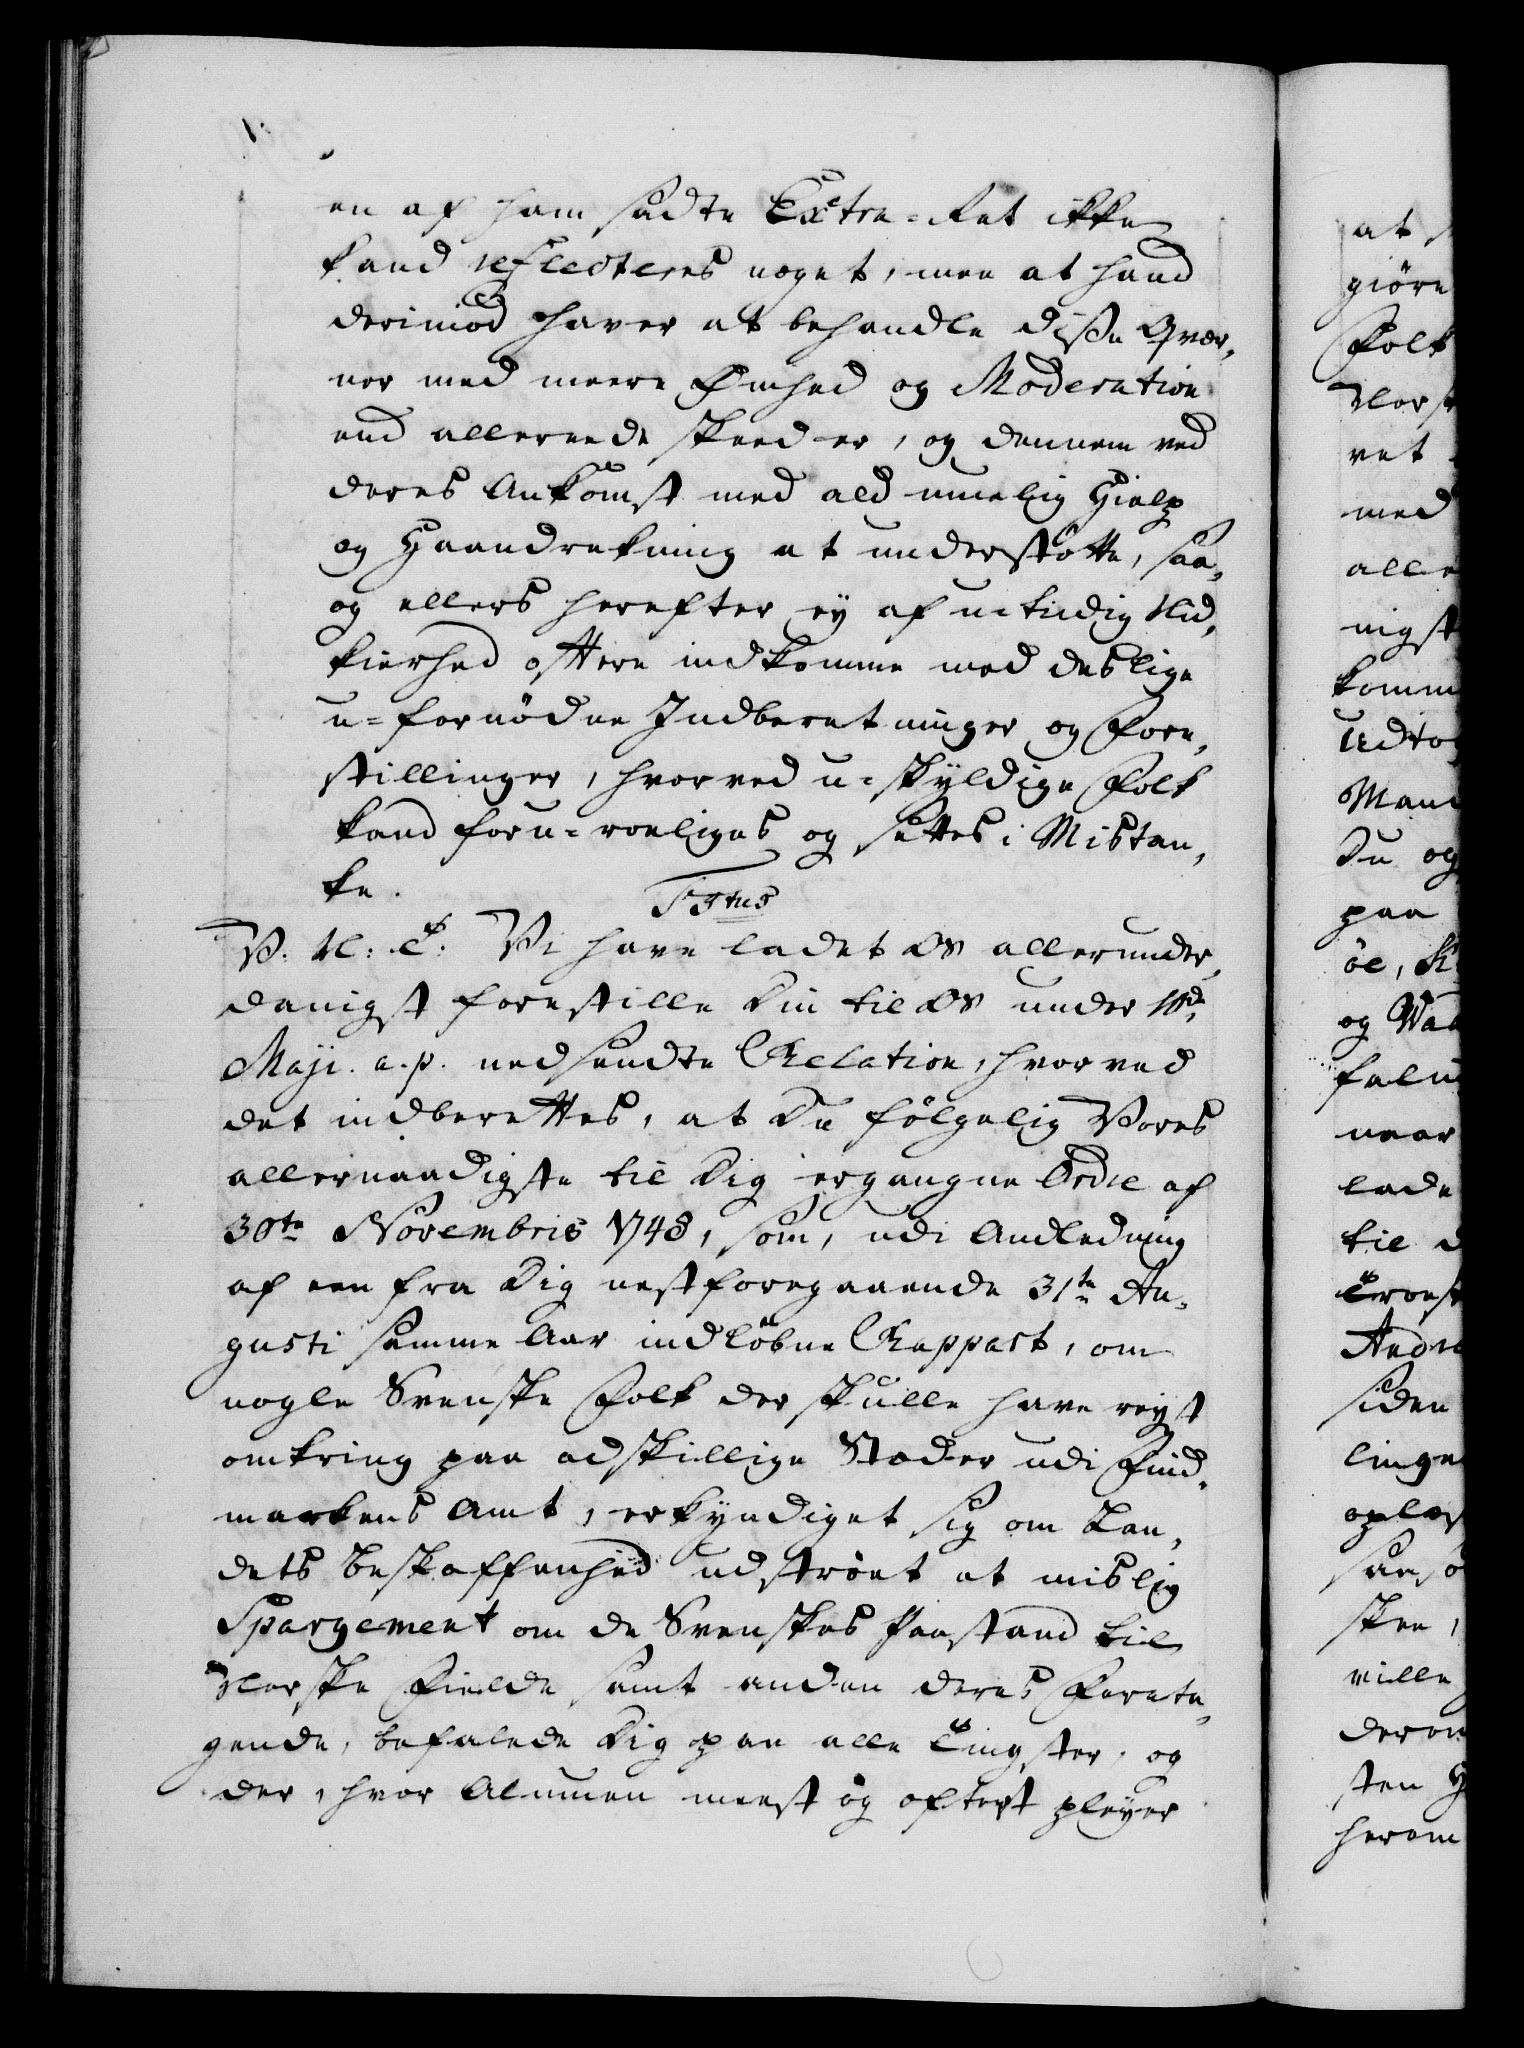 en af ham sadte Extra-Ret ikke
kand reflecteres noget, men at hand
derimod haver at behandle disse Qvær,
ner med meere Ømhed og Moderation
end allereede skeed er, og dennem ved
deres Ankomst med ald muelig Hielp
og Haandrekning at understøtte, saa,
og ellers herefter ey af u-tiidig Nid,
kierhed oftere indkomme med deslige
u-fornødne Indberetninger og Fore,
stillinger, hvorved u-skyldige Folk
kand foru-roeliges og settes i Mistan,
ke.
V. Vi have ladet Os allerunder,
danigst forestille Din til Os under
Maji. a. p. nedsendte Relation, hvorved
det indberettes, at Du følgelig Vores
allernaadigste til Dig ergangne Ordre af
30te Novembris 1748, som, udi Anledning
af een fra Dig nestforegaaende 31te Au,
gusti samme Aar indløbne Rapport, om
nogle Svenske Folk der skulle have reyst
omkring paa adskillige Stæder udi Find,
markens Amt, erkyndiget sig om Lan,
dets Beskaffenhed udstrøet et mislig
Spargement om de Svenskes Paastand til
Norske Fielde samt anden deres Foreta,
gende, befalede Dig paa alle Tingster, og
der, hvor Almuen meest og oftest pleyer
at
giöre
Folk
Norsk
ret
med
alle
nigst
komm
Udtog
Mand
Du og
paa
og
naar
lade
til
siden
linge
skee,
ville
derom
sten
herom